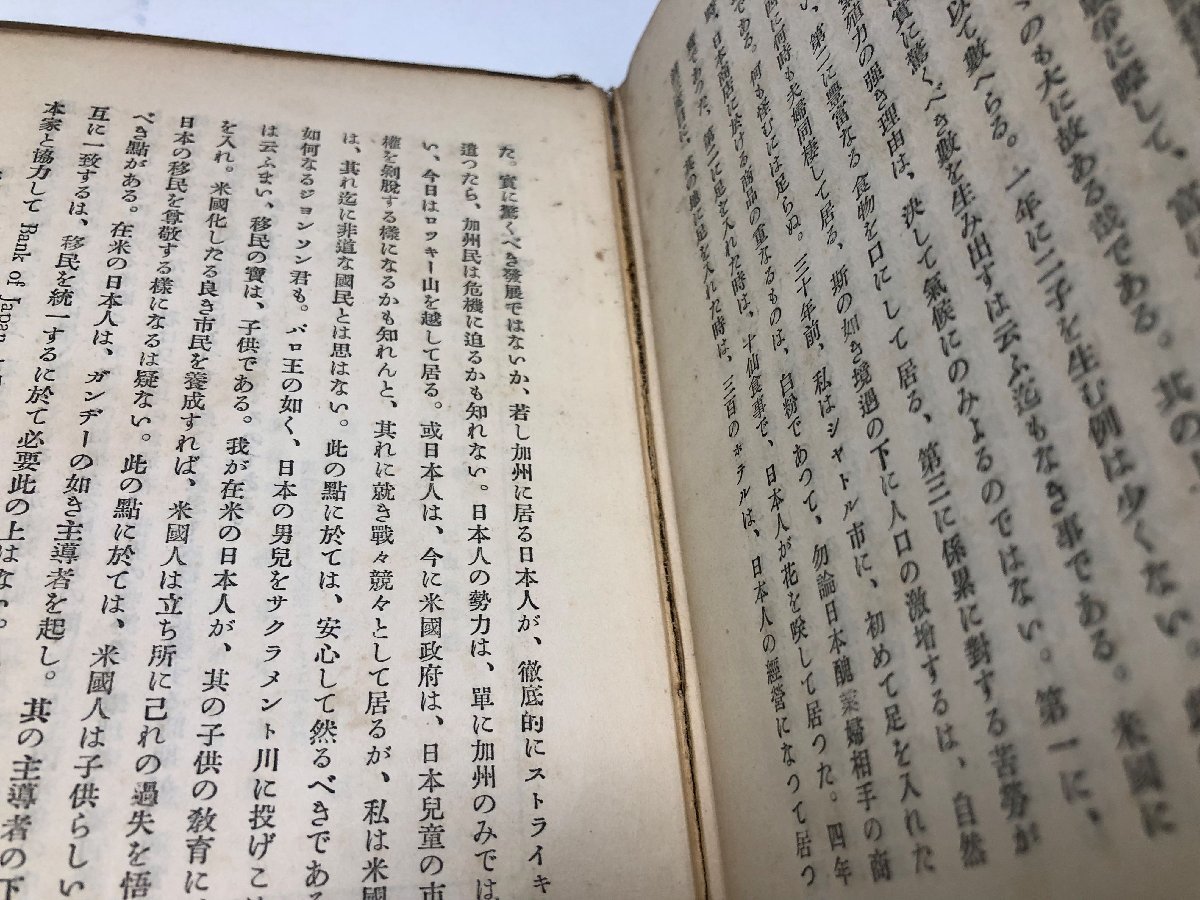 際して、
のも大に故ある哉である。其の
以て數へらる。一年に二子を生む例は少くない。
實に驚くべき數を生み出すは云ふ迄もなき事である。米國に
殖力の强き理由は、決して氣候にのみよるのではない。第一に、
第二に豐富なる食物を口にして居る、第三に係累に對する苦勞が
何時も夫婦同棲して居る、斯の如き境遇の下に人口の激增するは、自然
である。何も怪むには足らぬ。三十年前、私はシャトル市に、初めて足を入れた
日本商店に於ける商品の重なるものは、白粉であつて、勿論日本醜業婦相手の商
であつた。第二に足を入れた時は、十仙食事で、日本人が花を咲して居つた。四年
足を入れた時は、三百のホテルは、日本人の經營になつて居つ
た。實に驚くべき發展ではないか、若し加州に居る日本人が、徹底的にストライキ
遣つたら、加州民は危機に迫るかも知れない。日本人の勢力は、單に加州のみでは
い、今日はロッキー山を越して居る。或日本人は、今に米國政府は、日本兒童の市
權を剝脫する樣になるかも知れんと、其れに就き戰々競々として居るが、私は米國
は、其れ迄に非道な國民とは思はない。此の點に於ては、安心して然るべきである
如何なるジョンソン君も。パロ王の如く、日本の男兒をサクラメント川に投げこ
は云ふまい、移民の寶は、子供である。我が在米の日本人が、其の子供の敎育に
を入れ。米國化したる良き市民を養成すれば、米國人は立ち所に己れの過失を悟
日本の移民を尊敬する樣になるは疑ない。此の點に於ては、米國人は子供らしい
べき點がある。在米の日本人は、ガンヂーの如き主導者を起し。其の主導者の下
互に一致するは、移民を統一するに於て必要此の上はない。
本家と協力して Bank of Japan